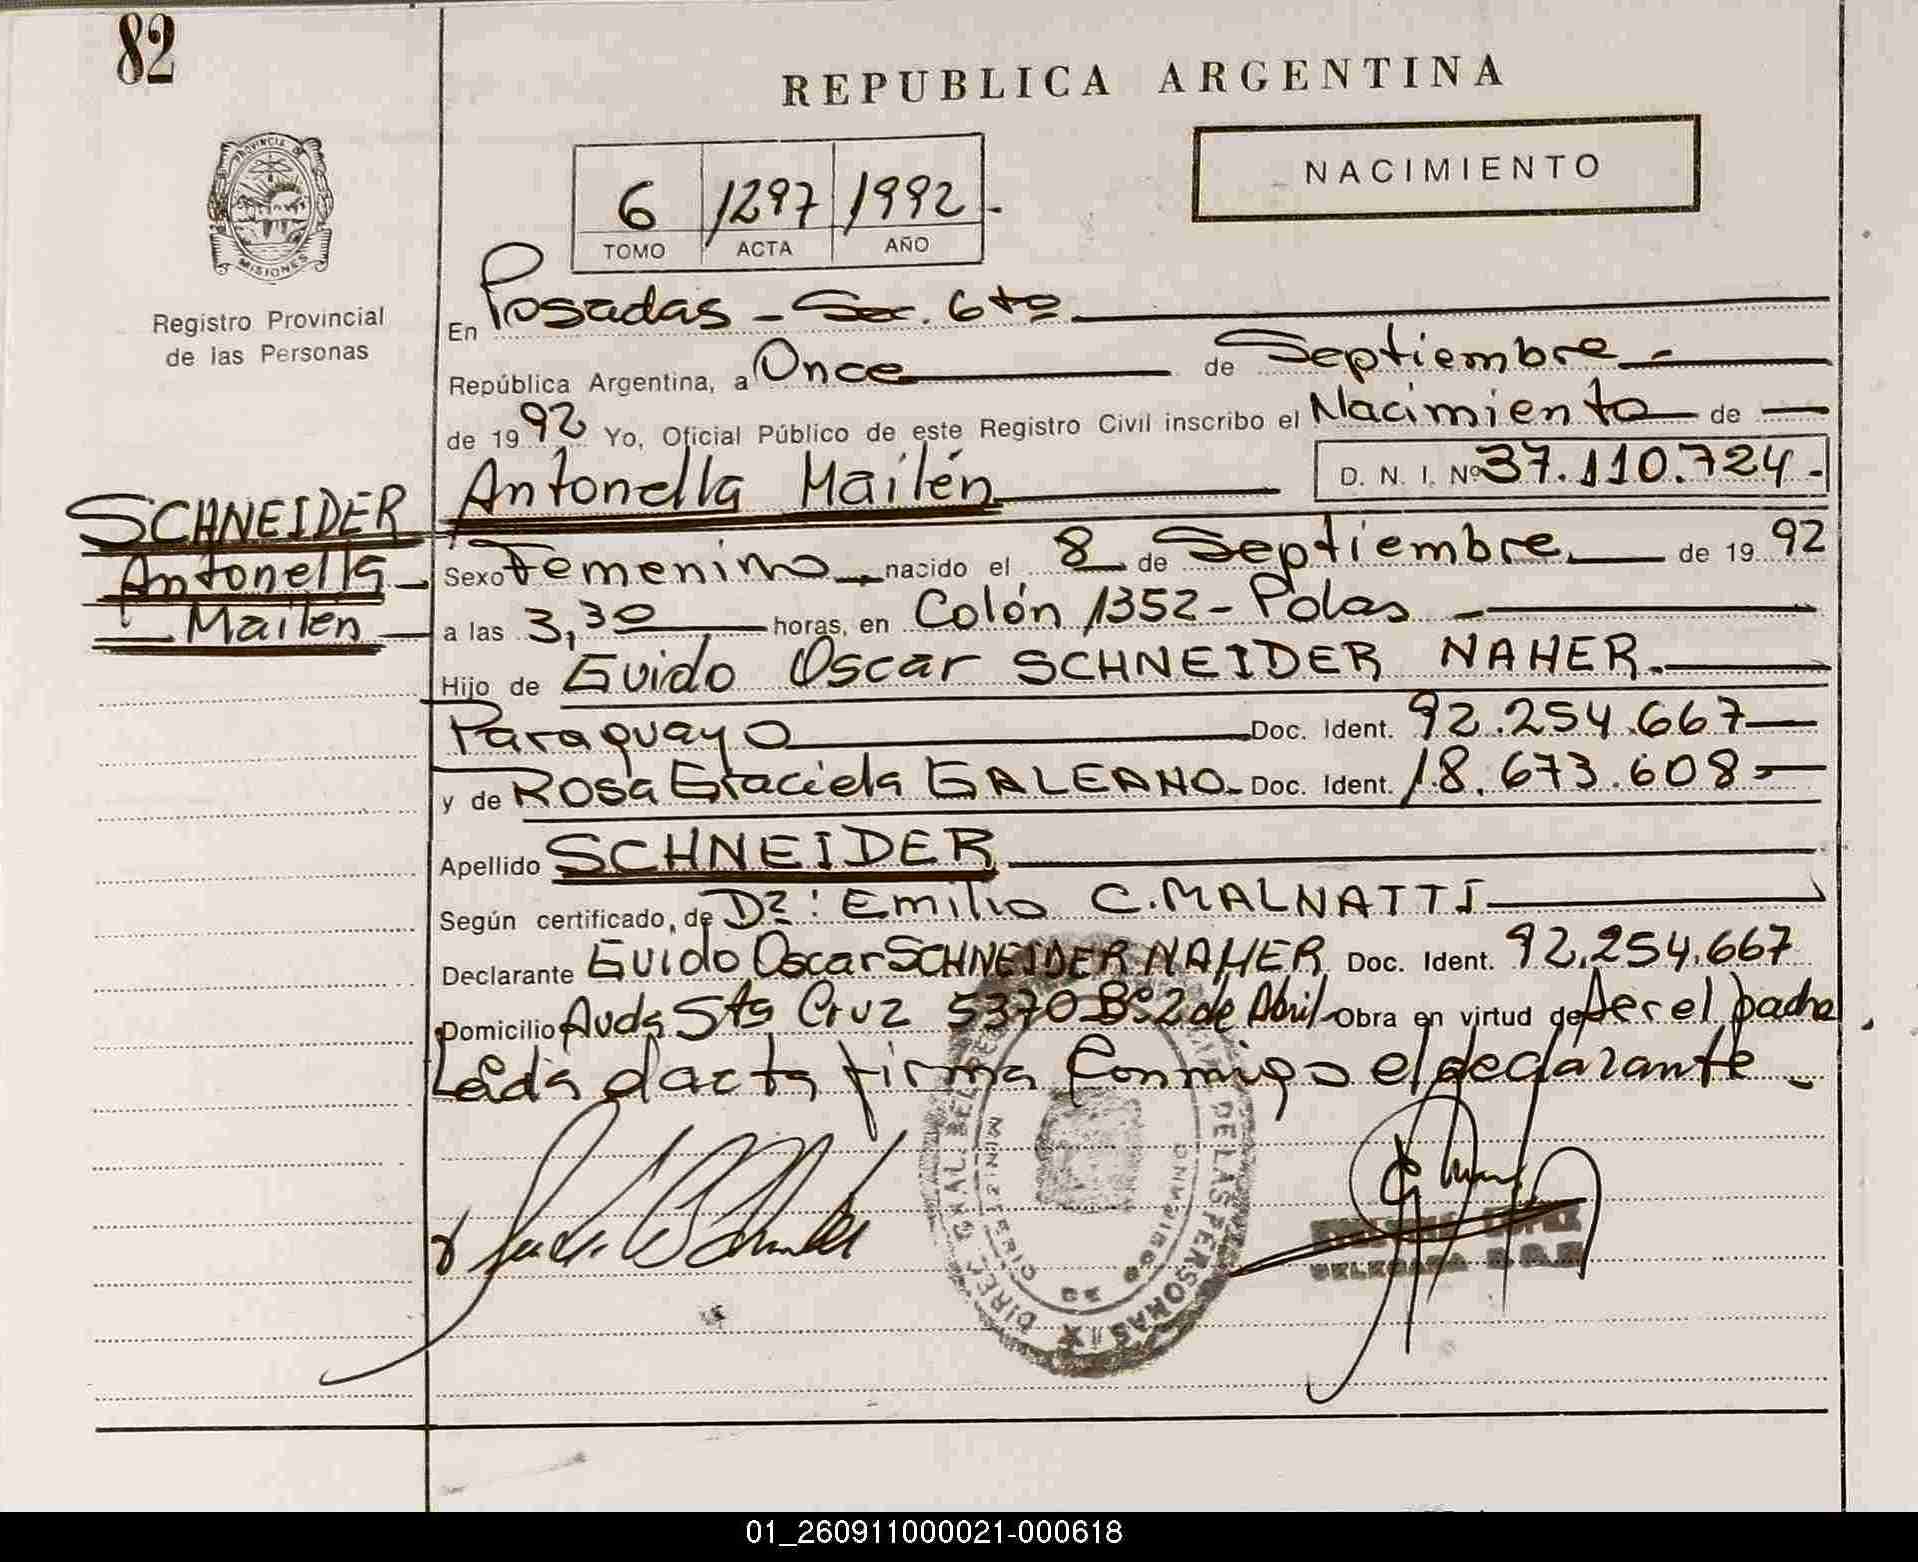 82
REPUBLICA ARGENTINA
NACIMIENTO
6 1297 1992
TOMO ACTA AÑO
PROVINCIA DE
MISIONES
Registro Provincial
de las Personas
En Posadas - Sec. 6ta
República Argentina, a Once de Septiembre
de 1992 Yo, Oficial Público de este Registro Civil inscribo el Nacimiento de
Antonella Mailén D. N. I. Nº 37.110.724.-
SCHNEIDER
Antonella
Mailen
Sexo Femenino nacido el 8 de Septiembre de 1992
a las 3,30 horas, en Colón 1352 - Pdas
Hijo de Guido Oscar SCHNEIDER NAHER.
Paraguayo Doc. Ident. 92.254.667
y de Rosa Graciela GALEANO. Doc. Ident. 18.673.608
Apellido SCHNEIDER
Según certificado, de Dr: Emilio C. MALNATTI
Declarante Guido Oscar SCHNEIDER NAHER Doc. Ident. 92.254.667
Domicilio Avda Sta Cruz 5370 Bº 2 de Abril Obra en virtud de ser el padre
Leida el acta firma conmigo el declarante
DIREC. GRAL. DEL REG. DE LAS PERSONAS
MINISTERIO DE GOBIERNO
LOPEZ
DELEGADA
01_260911000021-000618